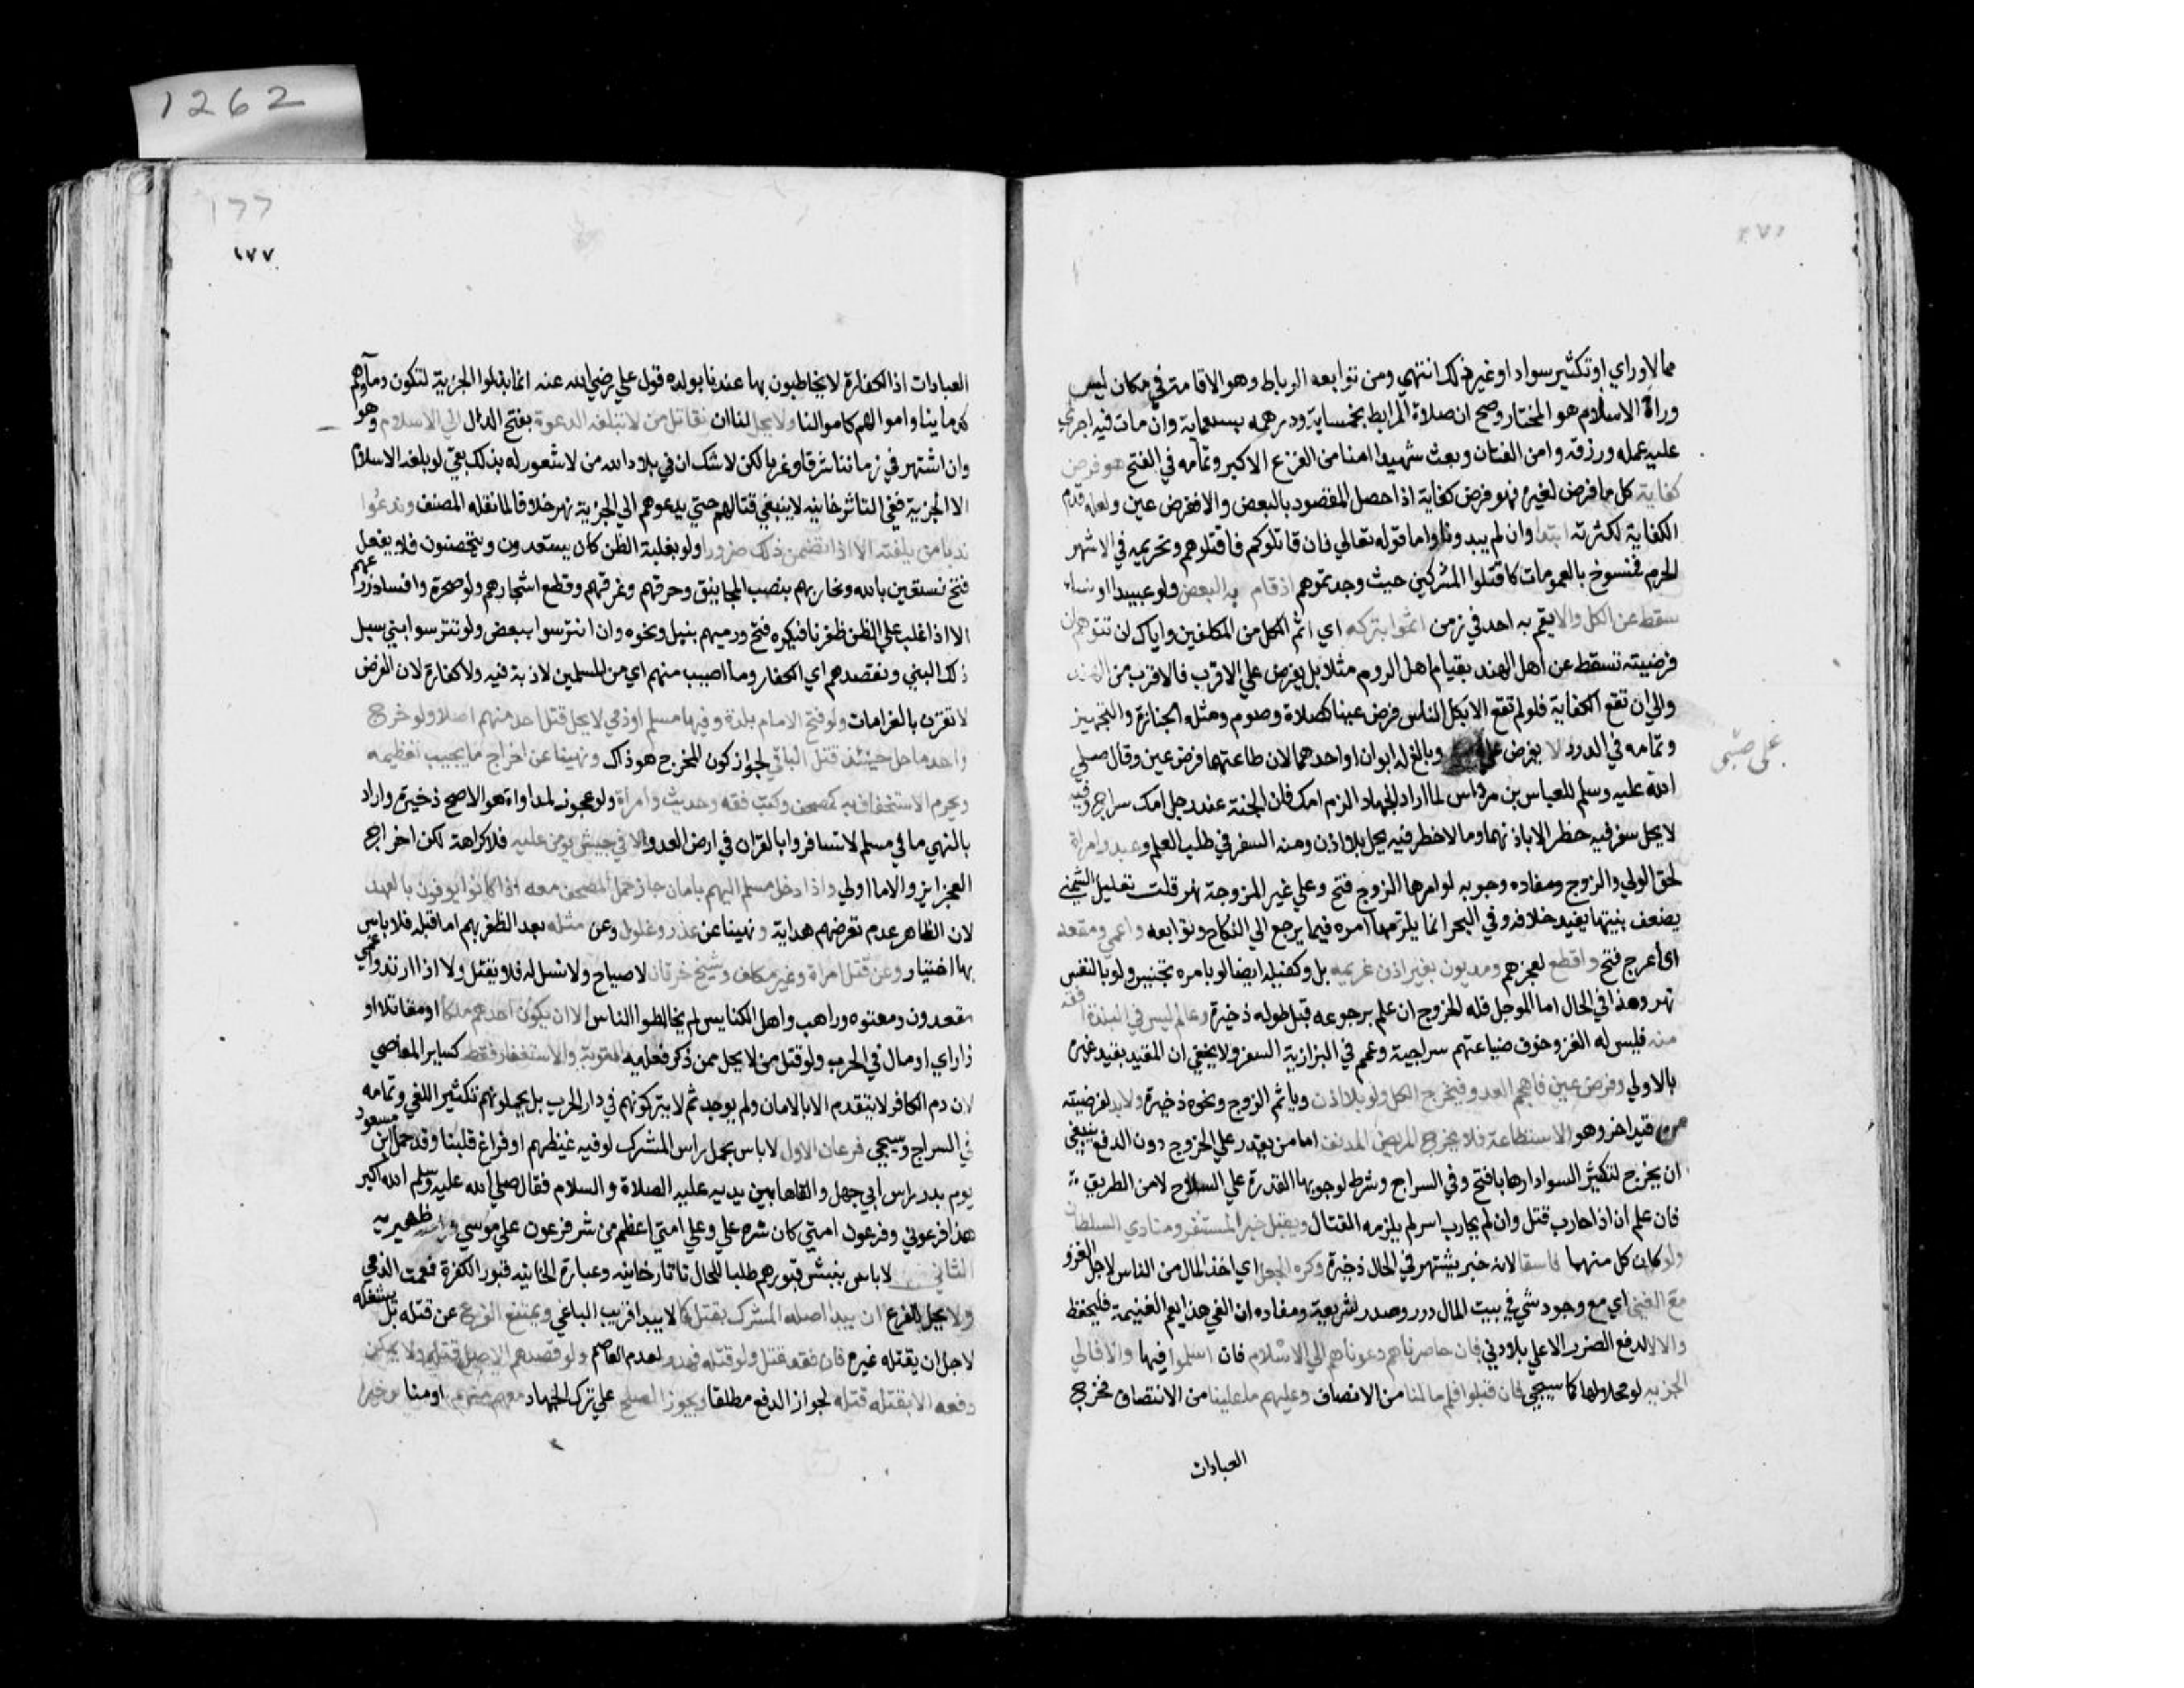 1262
مما لاوراي او تكثير سواد او غير ذلك انتهي ومن توابعه الرباط وهو الاقامة في مكان ليس
وراءه الاسلام هو المختار وصح ان صلاة المرابط بخمسماية ودرهمه بسبعماية وان مات فيه اجري
عليه عمله ورزقه وامن الفتان وبعث شهيدا امنا من الفزع الاكبر وتمامه في الفتح هو فرض
كفاية كل ما فرض لغيره فهو فرض كفاية اذا حصل المقصود بالبعض والا ففرض عين ولعله قدم
الكفاية لكثرته ابتدا وان لم يبدونا واما قوله تعالي فان قاتلوكم فاقتلوهم وتحريمه في الاشهر
الحرم فمنسوخ بالعمومات كاقتلوا المشركين حيث وجدتموهم اذ قام به البعض ولو عبيدا او نساء
سقط عن الكل والا يقم به احد في زمن اثموا بتركه اي اثم الكل من المكلفين واياك ان تتوهم ان
فرضيته تسقط عن اهل الهند بقيام اهل الروم مثلا بل يفرض علي الاقرب فالاقرب من العدو
والي ان تقع الكفاية فلو لم تقع الا بكل الناس فرض عينا كصلاة وصوم ومثله الجنازة والتجهيز
وتمامه في الدرر لا يفرض علي وبالغ له ابوان او احدهما لان طاعتهما فرض عين وقال صلي
علي صبي
الله عليه وسلم للعباس بن مرداس لما اراد الجهاد الزم امك فان الجنة عند رجل امك سراج وفيه
لا يحل سفر فيه خطر الا باذنهما وما لا خطر فيه يحل بلا اذن ومنه السفر في طلب العلم وعبد وامراة
لحق الولي والزوج ومفاده وجوبه لو امرها الزوج فتح وعلي غير المزوجة نهر قلت تعليل الشمني
بضعف بنيتها يفيد خلافه وفي البحر انما يلزمها امره فيما يرجع الي النكاح وتوابعه واعمي ومقعد
اي اعرج فتح واقطع لعجزهم ومديون بغير اذن غريمه بل وكفيله ايضا لو بامره تجنيس ولو بالنفس
نهر وهذا في الحال اما المؤجل فله الخروج ان علم برجوعه قبل حلوله ذخيرة وعالم ليس في البلدة افقه
منه فليس له الغزو خوف ضياعهم سراجية وعمم في البزازية السفر ولا يخفي ان المقيد يفيد غيره
بالاولي وفرض عين ان هجم العدو فيخرج الكل ولو بلا اذن وياثم الزوج ونحوه ذخيرة ولا بد لفرضيته
من قيد اخر وهو الاستطاعة فلا يخرج المريض المدنف اما من يقدر علي الخروج دون الدفع ينبغي
ان يخرج لتكثير السواد ارهابا فتح وفي السراج وشرط لوجوبها القدرة علي السلاح لا من الطريق
فان علم ان اذا حارب قتل وان لم يحارب اسر لم يلزمه القتال ويقبل خبر المستنفر ومنادي السلطان
ولو كان كل منهما فاسقا لانه خبر يشتهر في الحال ذخيرة وكره الجعل اي اخذ المال من الناس لاجل الغزو
مع الفي اي مع وجود شي في بيت المال درر وصدر الشريعة ومفاده ان الفي هنا يعم الغنيمة فليحفظ
والا لا لدفع الضرر الاعلي بالادني فان حاصرناهم دعوناهم الي الاسلام فان اسلموا فبها والا فالي
الجزية لو محلا لها كما سيجي فان قبلوا فلهم ما لنا من الانصاف وعليهم ما علينا من الانتصاف فخرج
العبادات
177
١٧٧
العبادات اذ الكفارة لا يخاطبون بها عندنا يويده قول علي رضي الله عنه انما بذلوا الجزية لتكون دماؤهم
كدماينا واموالهم كاموالنا ولا يحل لنا ان نقاتل من لا تبلغه الدعوة بفتح الدال الي الاسلام وهو
وان اشتهر في زماننا شرقا وغربا لكن لا شك ان في بلاد الله من لا شعور له بذلك بقي لو بلغه الاسلام
لا الجزية ففي التاتارخانيه لا ينبغي قتالهم حتي يدعوهم الي الجزية نهر خلافا لما نقله المصنف وندعوا
ندبا من بلغته الا اذا تضمن ذلك ضررا ولو بغلبة الظن كان يستعدون ويتحصنون فلا يفعل
فتح نستعين بالله ونحاربهم بنصب المجانيق وحرقهم وغرقهم وقطع اشجارهم ولو مثمرة وافساد زرعهم
الا اذا غلب علي الظن ظفرنا فيكره فتح ورميهم بنبل ونحوه وان تترسوا ببعض ولو تترسوا بنبي سيل
ذلك النبي ونقصدهم اي الكفار وما اصيب منهم اي من المسلمين لا دية فيه ولا كفارة لان الفرض
لا تقرن بالغرامات ولو فتح الامام بلدة وفيها مسلم او ذمي لا يحل قتل احد منهم اصلا ولو خرج
واحد ما حل حينئذ قتل الباقي لجواز كون المخرج هو ذاك ونهينا عن اخراج ما يجب تعظيمه
ويحرم الاستخفاف به كمصحف وكتب فقه وحديث وامراة ولو عجوز لمداواة هو الاصح ذخيرة واراد
بالنهي ما في مسلم لا تسافروا بالقران في ارض العدو الا في جيش يومن عليه فلا كراهة لكن اخراج
العجايز والاما اولي واذا دخل مسلم اليهم بامان جاز حمل المصحف معه اذا كانوا يوفون بالعهد
لان الظاهر عدم تعرضهم هداية ونهينا عن غدر وغلول وعن مثله بعد الظفر بهم اما قبله فلا باس
بها اختيار وعن قتل امراة وغير مكلف وشيخ خرفان لا صياح ولا نسل له فلا يقتل ولا اذا ارتد واعمي
مقعد ون ومعتوه وراهب واهل الكنايس لم يخالطوا الناس الا ان يكون احدهم ملكا او مقاتلا او
ذا راي او مال في الحرب ولو قتل من لا يحل ممن ذكر فعليه التوبة والاستغفار فقط كساير المعاصي
لان دم الكافر لا يتقوم الا بالامان ولم يوجد ثم لا يتركونهم في دار الحرب بل يحملونهم تكثير اللفي وتمامه
في السراج وسيجي فرعان الاول لا باس بحمل راس المشرك لو فيه غيظهم او فراغ قلبنا وقد حمل ابن مسعود
يوم بدر راس ابي جهل والقاها بين يديه عليه الصلاة والسلام فقال صلي الله عليه وسلم الله اكبر
هذا فرعوني وفرعون امتي كان شره علي وعلي امتي اعظم من شر فرعون علي موسي وامته ظهيريه
الثاني لا باس بنبش قبورهم طلبا للمال تاتارخانيه وعبارة الخانيه قبور الكفرة فعمت الذمي
ولا يحل للفرع ان يبدا اصله المشرك بقتل كما لا يبدا قريب الباغي ويمتنع الفرع عن قتله بل يشغله
لاجل ان يقتله غيره فان فقد قتل ولو قتله فهدر لعدم العاصم ولو قصدهم الاصل قتله ولا يمكن
دفعه الا بقتله قتله لجواز الدفع مطلقا ويجوز الصلح علي ترك الجهاد معهم منهم او منا لو خيرا